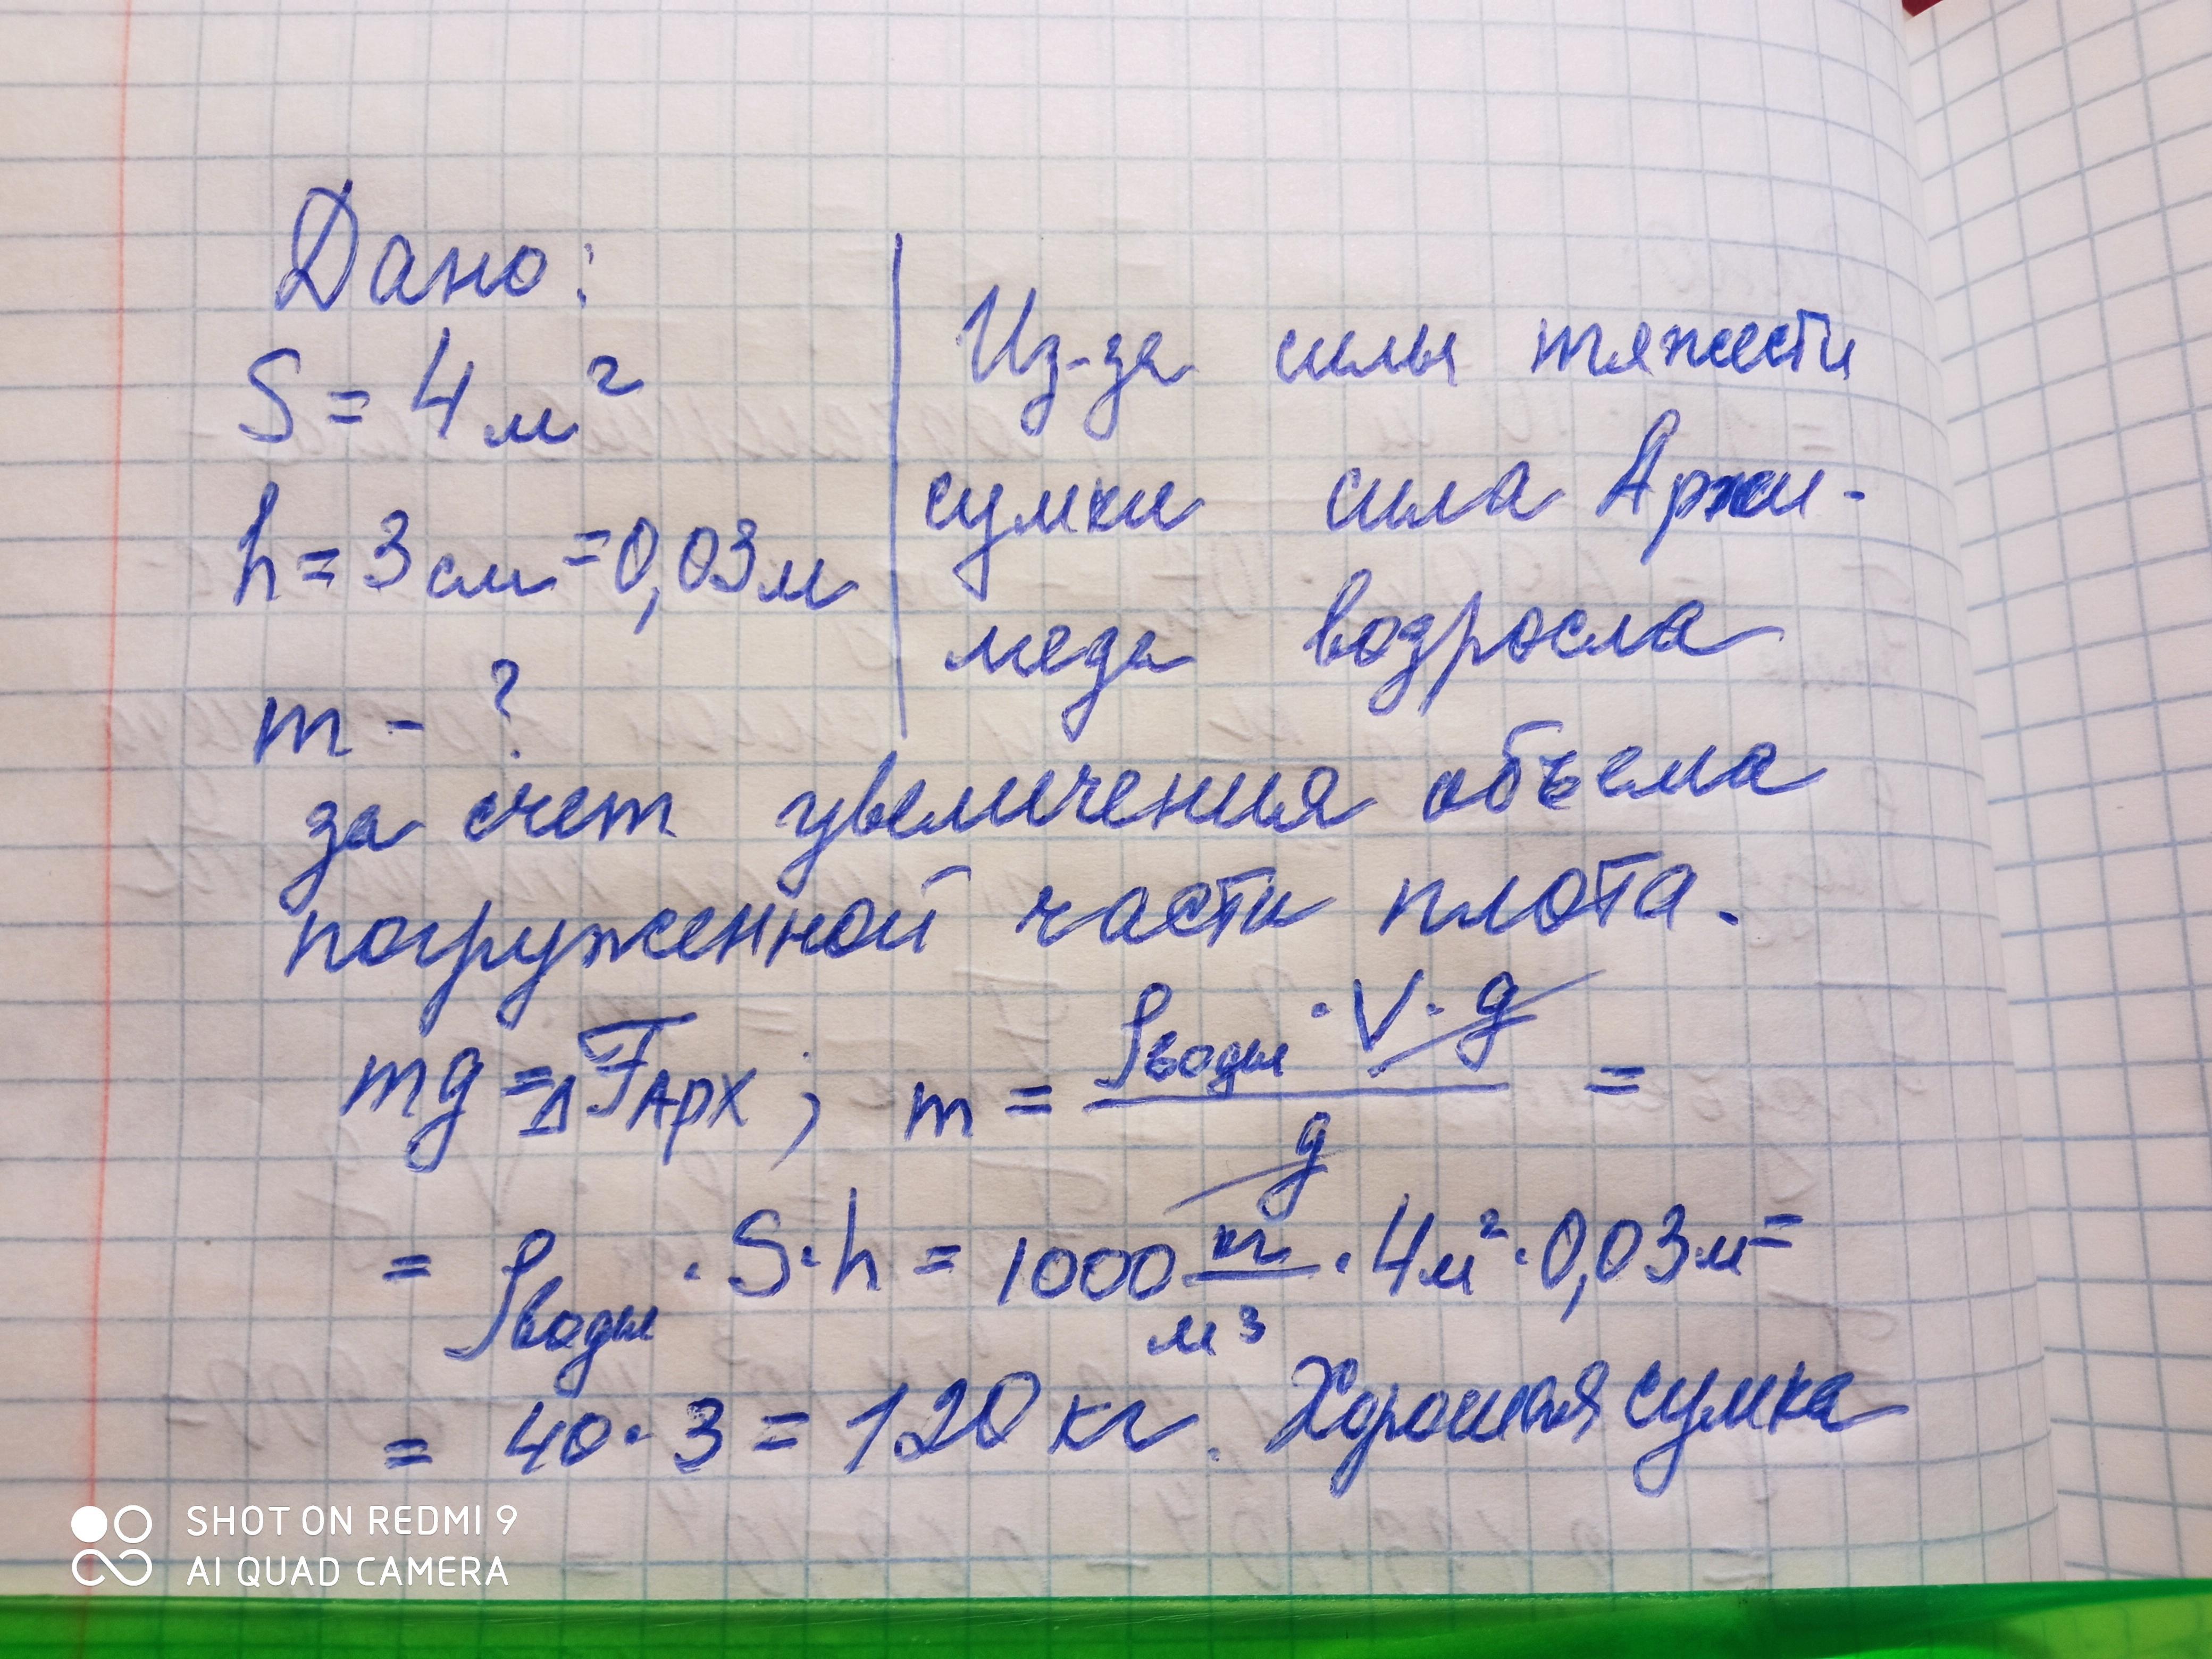 Дано:
S = 4 м²
h = 3 см = 0,03 м
m - ?
Из-за силы тяжести
сумки сила Архи-
меда возросла
за счет увеличения объема
погруженной части плота.
mg = ΔFАрх ; m = ρводы · V · g / g =
= ρводы · S · h = 1000 кг/м³ · 4 м² · 0,03 м =
= 40 · 3 = 120 кг. Хорошая сумка
SHOT ON REDMI 9
AI QUAD CAMERA